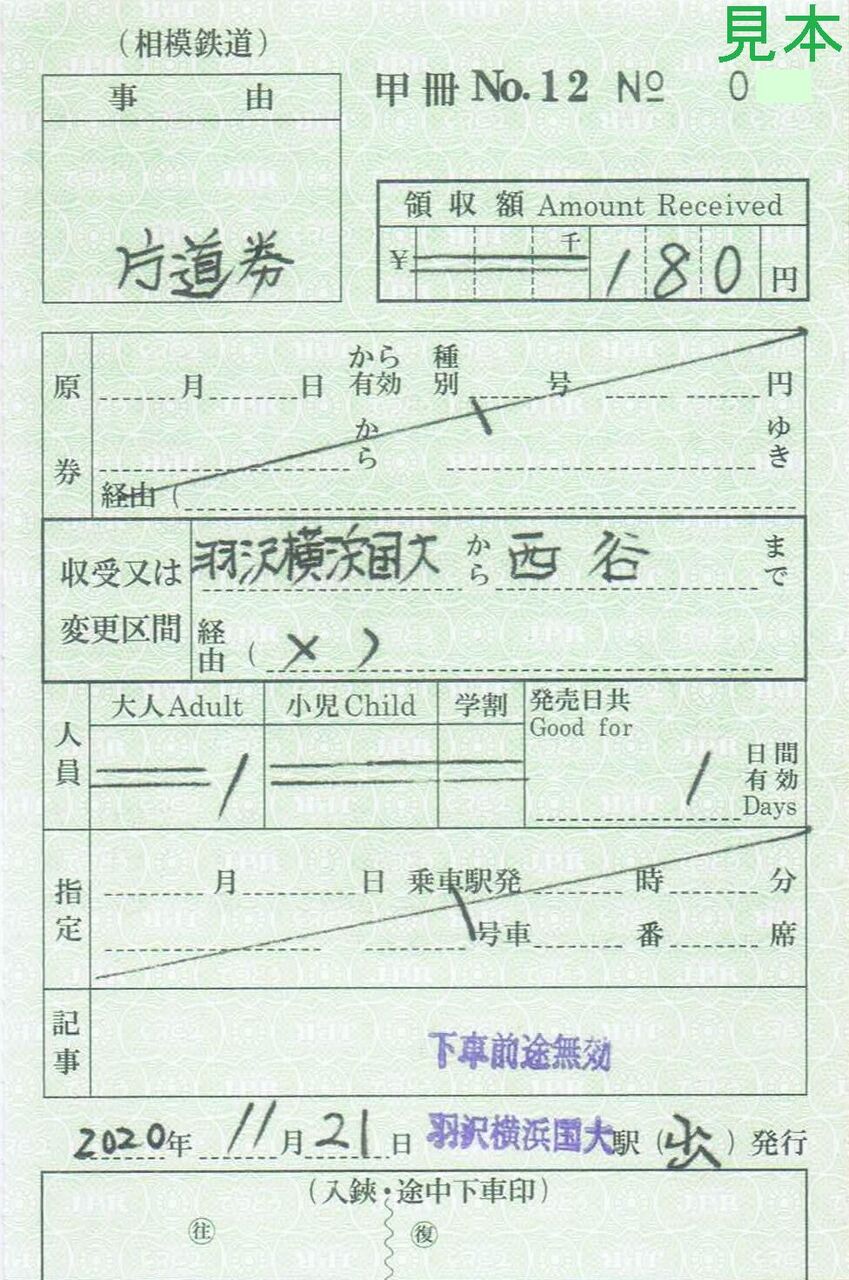 見本
(相模鉄道)
甲冊 No.12 № 0
事由
片道券
領収額 Amount Received
¥ 千 180 円
原券
月 日 から有効 種別 号 円
から ゆき
経由 (
収受又は変更区間
羽沢横浜国大 から 西谷 まで
経由 ( × )
人員
大人 Adult 小児 Child 学割 発売日共
Good for
1 1 日間有効
Days
指定
月 日 乗車駅発 時 分
号車 番 席
記事
下車前途無効
2020年 11月21日 羽沢横浜国大駅 ( ) 発行
(入鋏・途中下車印)
㊟往 復